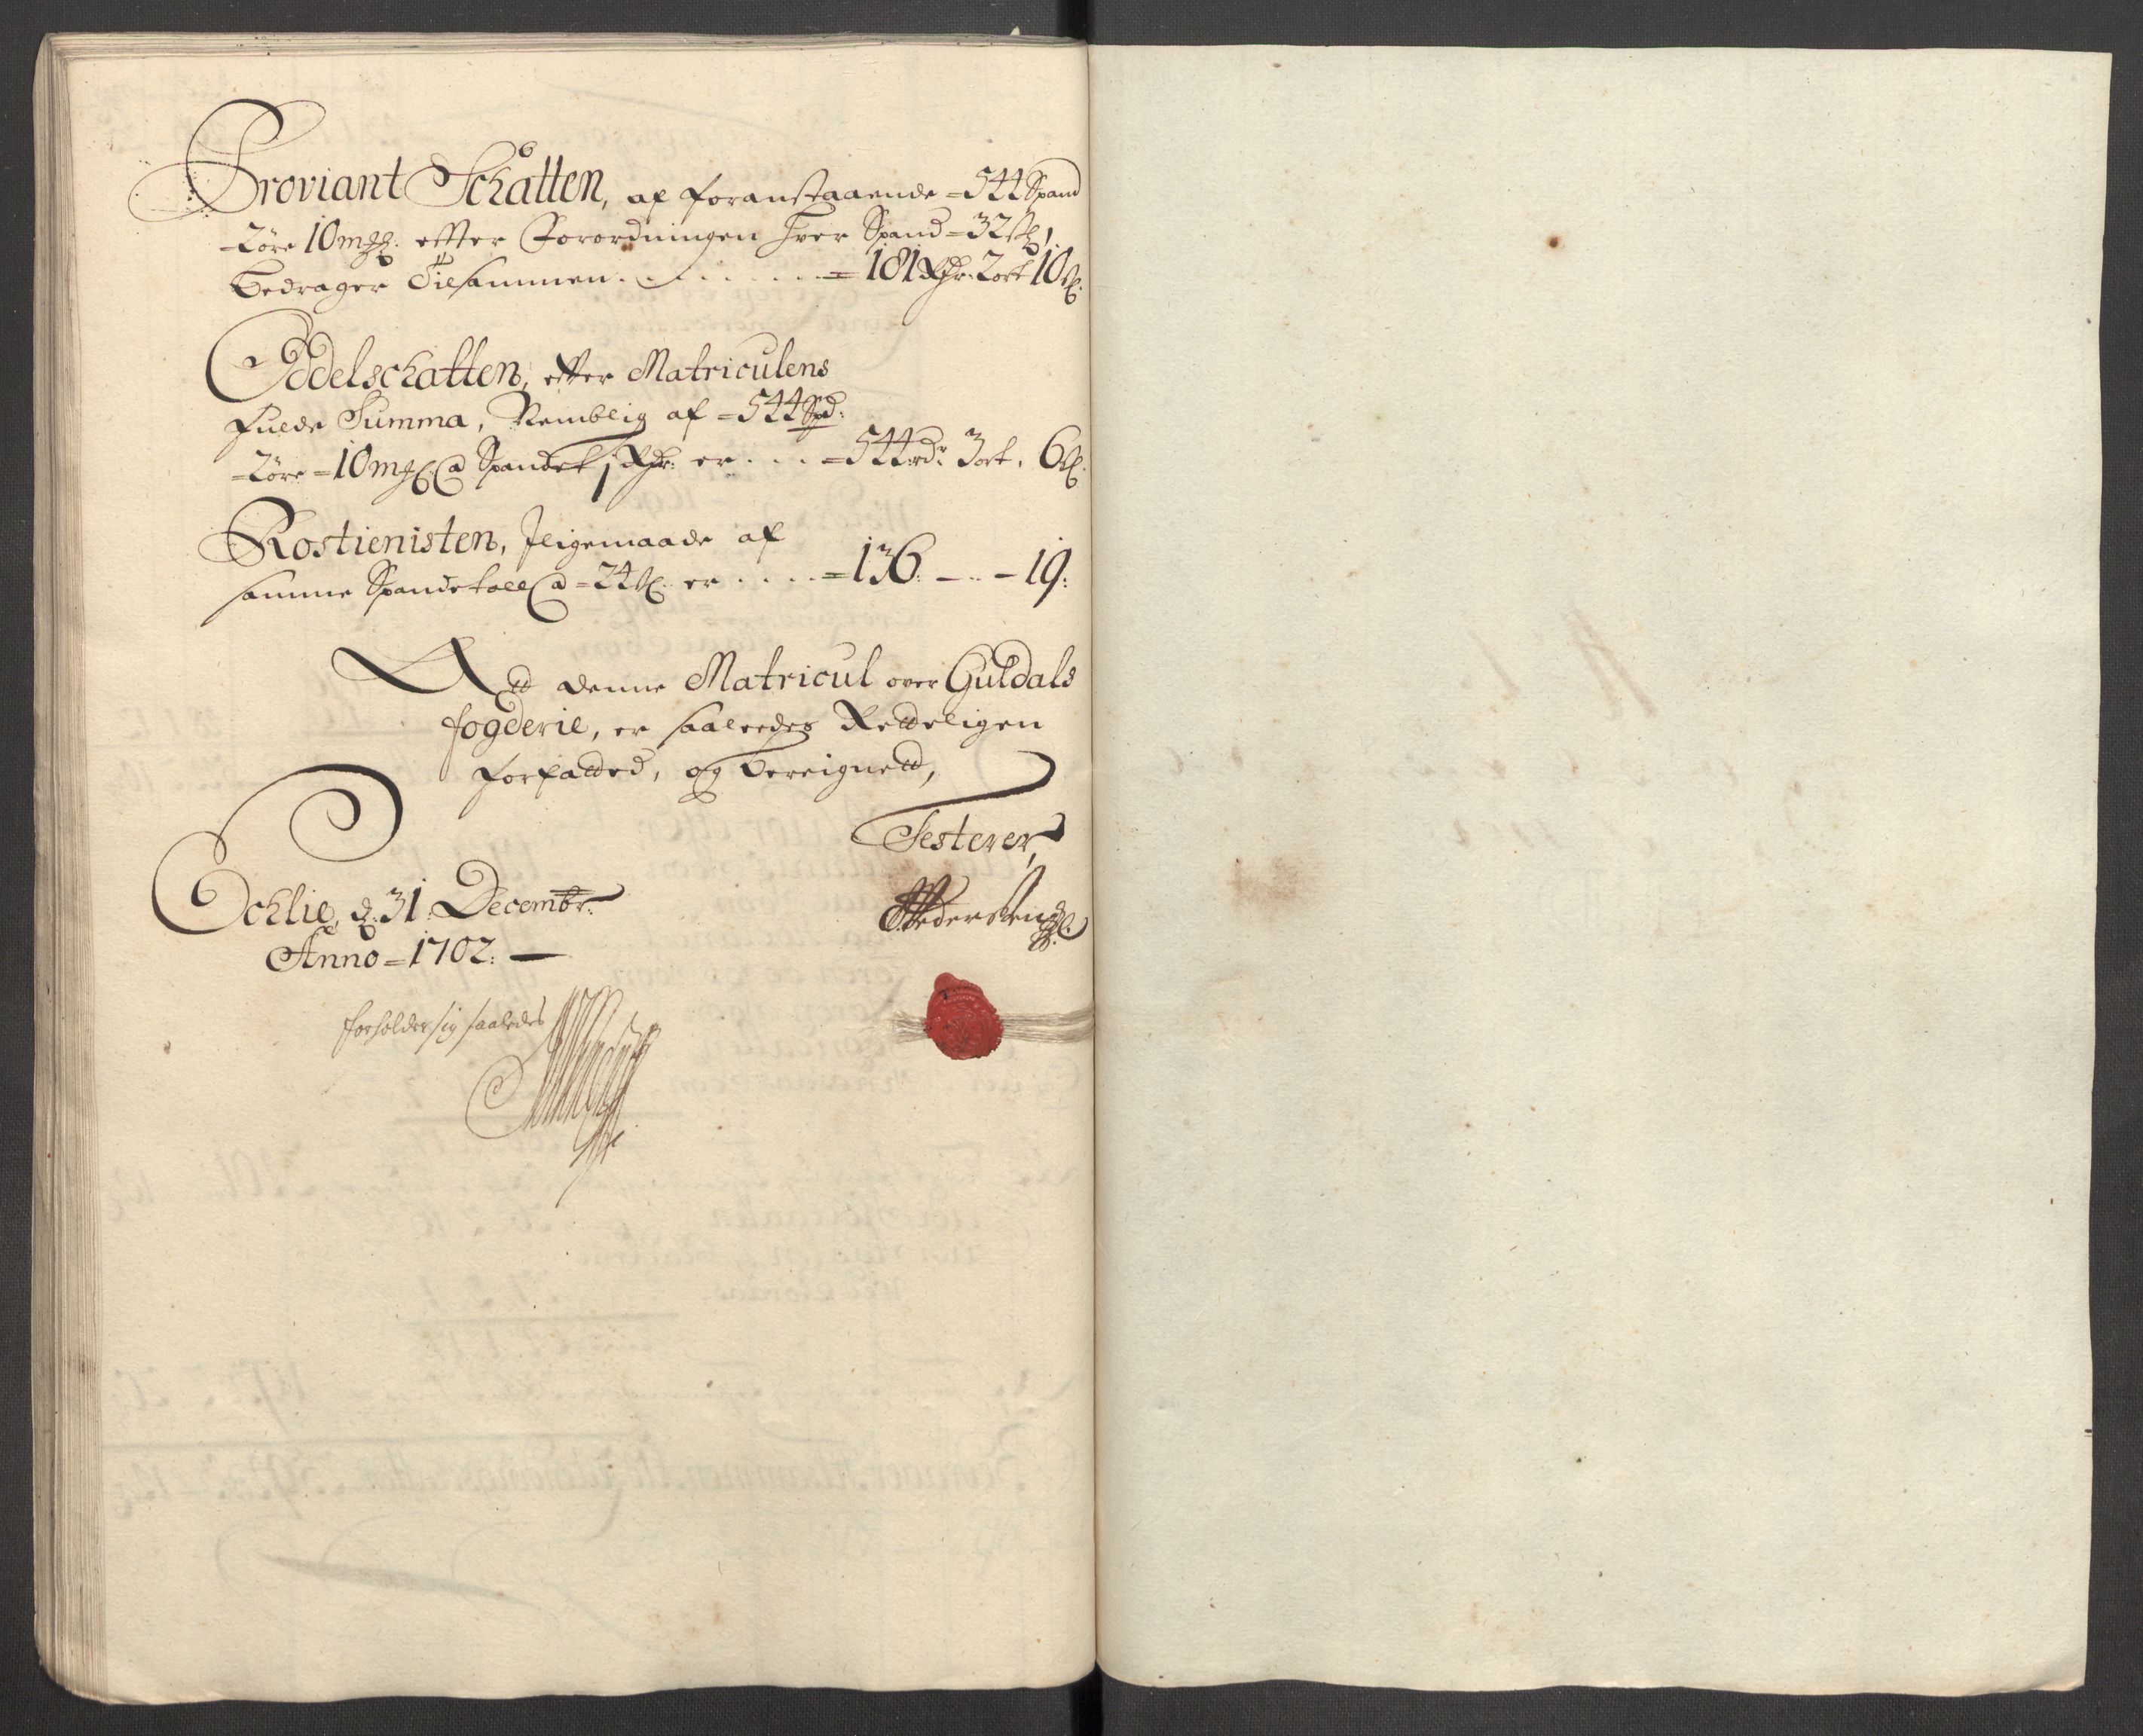 Proviant Schatten, af foranstaaende = 544 Spand
= 2 øre 10 mgℓ. effter Forordningen hver Spand = 32 ß,
bedrager Tilsammen . . . . . . . = 181 Rdr. 2 ort 10 ß.
Oddelschatten, efter Matriculens
fulde Summa, Nemblig af = 544 Spd:
= 2 øre = 10 mgℓ @ Spandet 1 Rdr: er . . . = 544 rdr 3 ort. 6 ß.
Rostienisten, Iligemaade af
samme Spandetall @ = 24 ß. er . . . . = 136. - .. - 19:
Att denne Matricul over Guldals
fogderie, er saaledes Retteligen
forfatted, og beregnett,
Testerer,
Echlie, d. 31. Decembr:
Anno = 1702. —
forholder sig saaledes